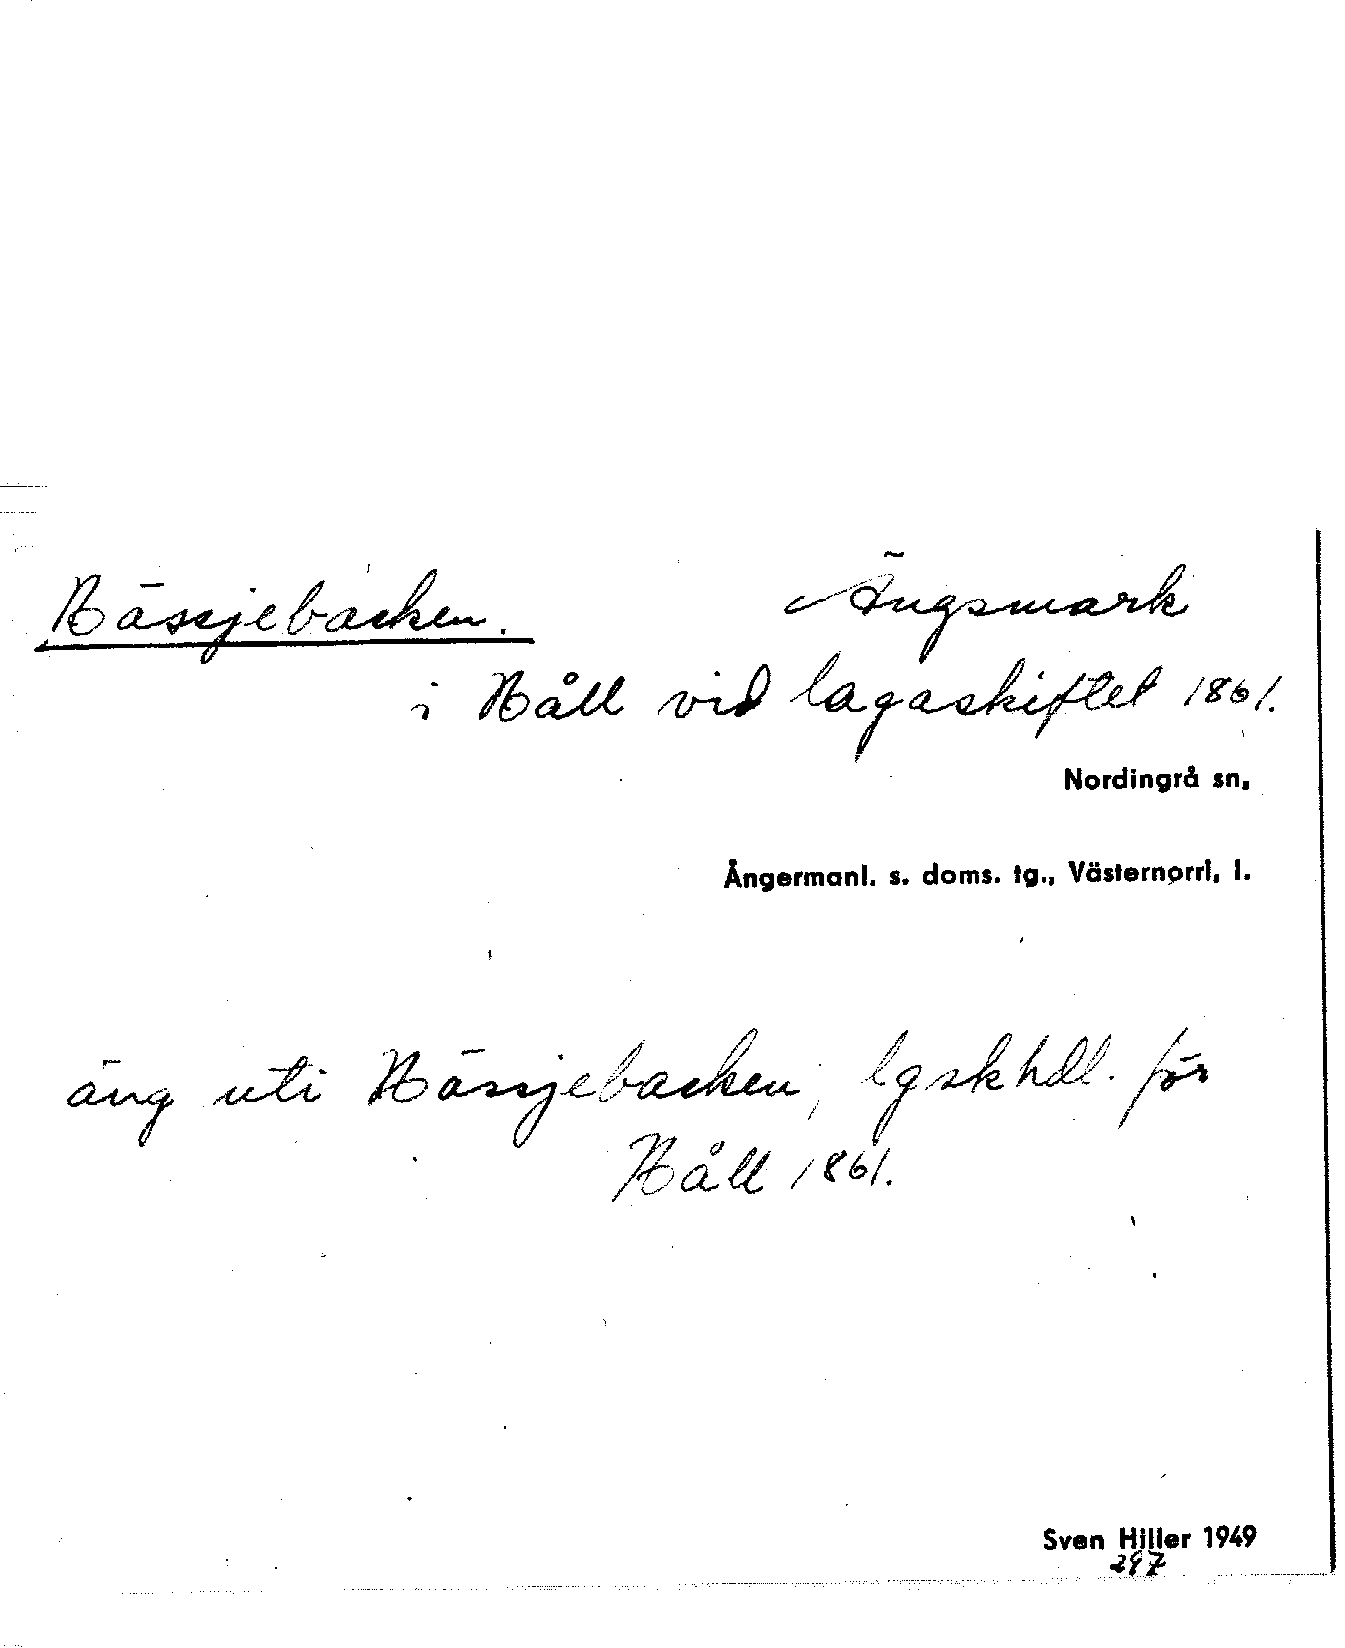 Hässjebacken. Ängsmark
i Håll vid lagaskiftet 1861.
Nordingrå sn,
Ångermanl. s. doms. tg., Västernorrl. l.
äng uti Hässjebacken, lgskhdl. för
Håll 1861.
Sven Hiller 1949
297